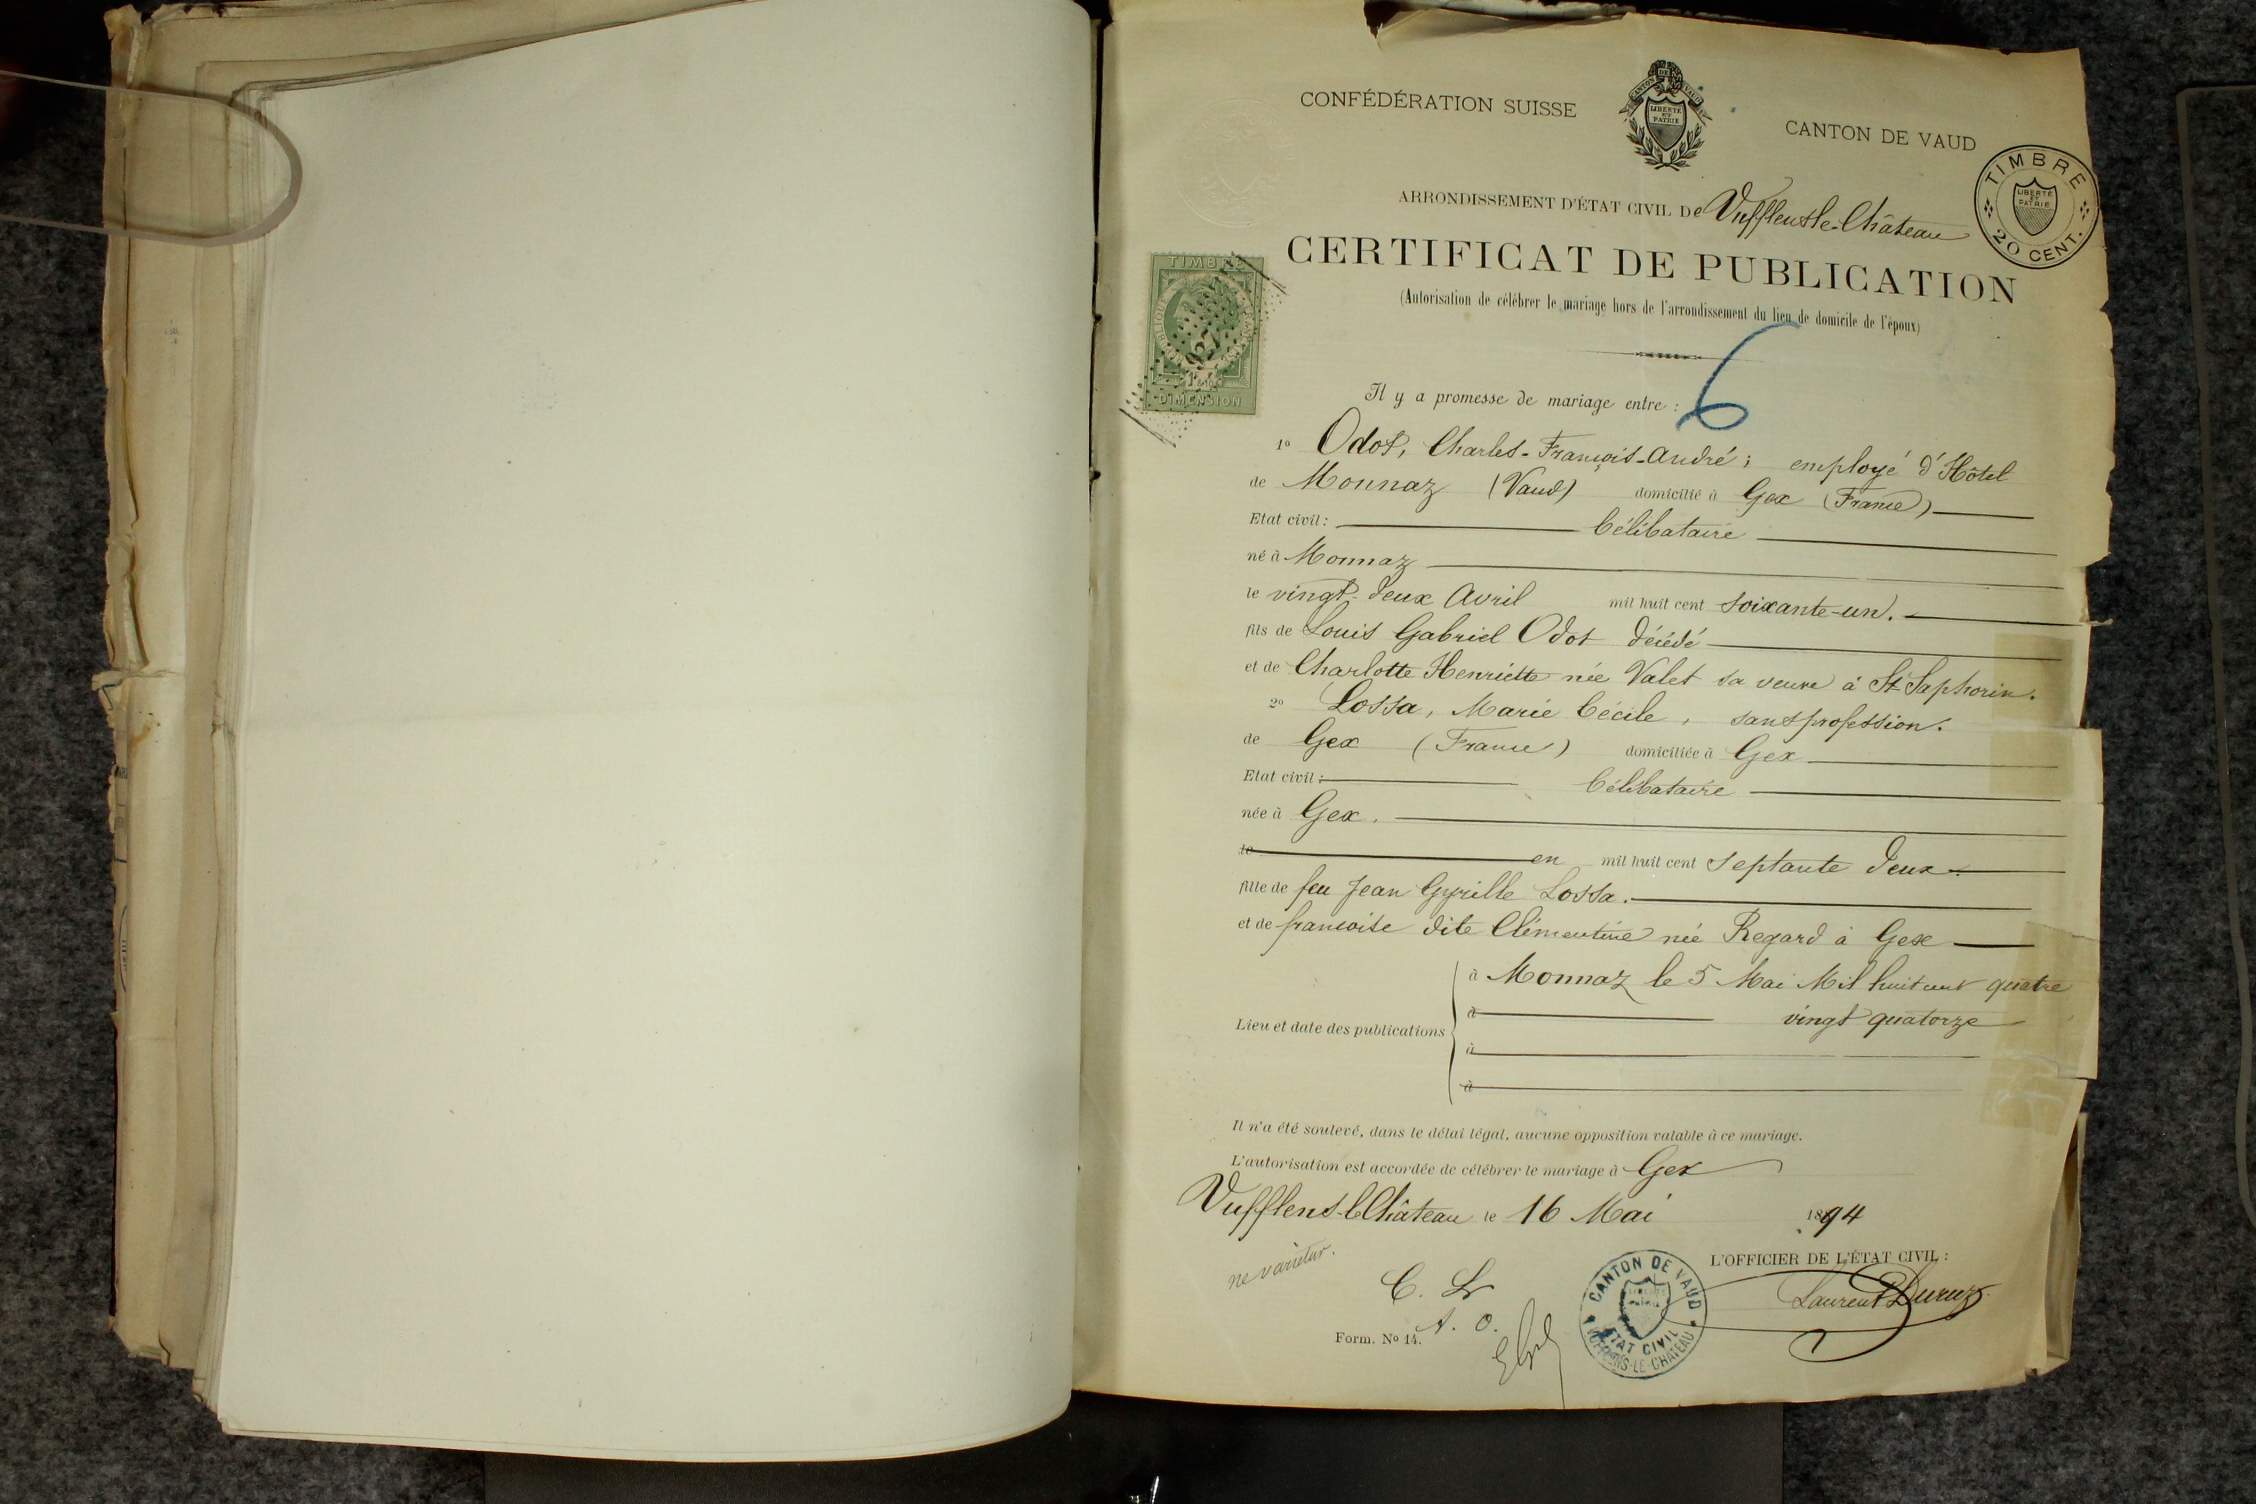 CONFÉDÉRATION SUISSE
CANTON DE VAUD
LIBERTÉ ET PATRIE
CANTON DE VAUD
TIMBRE
LIBERTÉ ET PATRIE
20 CENT.
ARRONDISSEMENT D'ÉTAT CIVIL DE Vufflens-le-Château
CERTIFICAT DE PUBLICATION
(Autorisation de célébrer le mariage hors de l'arrondissement du lieu de domicile de l'époux)
TIMBRE
927
DIMENSION
6
Il y a promesse de mariage entre :
1º Odot, Charles-François-André; employé d'Hôtel
de Monnaz (Vaud) domicilié à Gex (France)
Etat civil: Célibataire
né à Monnaz
le vingt-deux Avril mil huit cent soixante-un.
fils de Louis Gabriel Odot décédé
et de Charlotte Henriette née Valet sa veuve à St Saphorin.
2º Lossa, Marie Cécile, sans profession.
de Gex (France) domiciliée à Gex
Etat civil: Célibataire
née à Gex.
le en mil huit cent septante deux.
fille de feu Jean Cyrille Lossa.
et de françoise dite Clémentine née Regard à Gex
Lieu et date des publications
à Monnaz le 5 Mai Mil huit cent quatre
à vingt quatorze
à
à
Il n'a été soulevé, dans le délai légal, aucune opposition valable à ce mariage.
L'autorisation est accordée de célébrer le mariage à Gex
Vufflens-le Château le 16 Mai 1894
ne varietur.
L'OFFICIER DE L'ÉTAT CIVIL :
Laurent Duruz
C. L
A. O.
CANTON DE VAUD
ETAT CIVIL
VUFFLENS-LE-CHATEAU
Form. Nº 14.